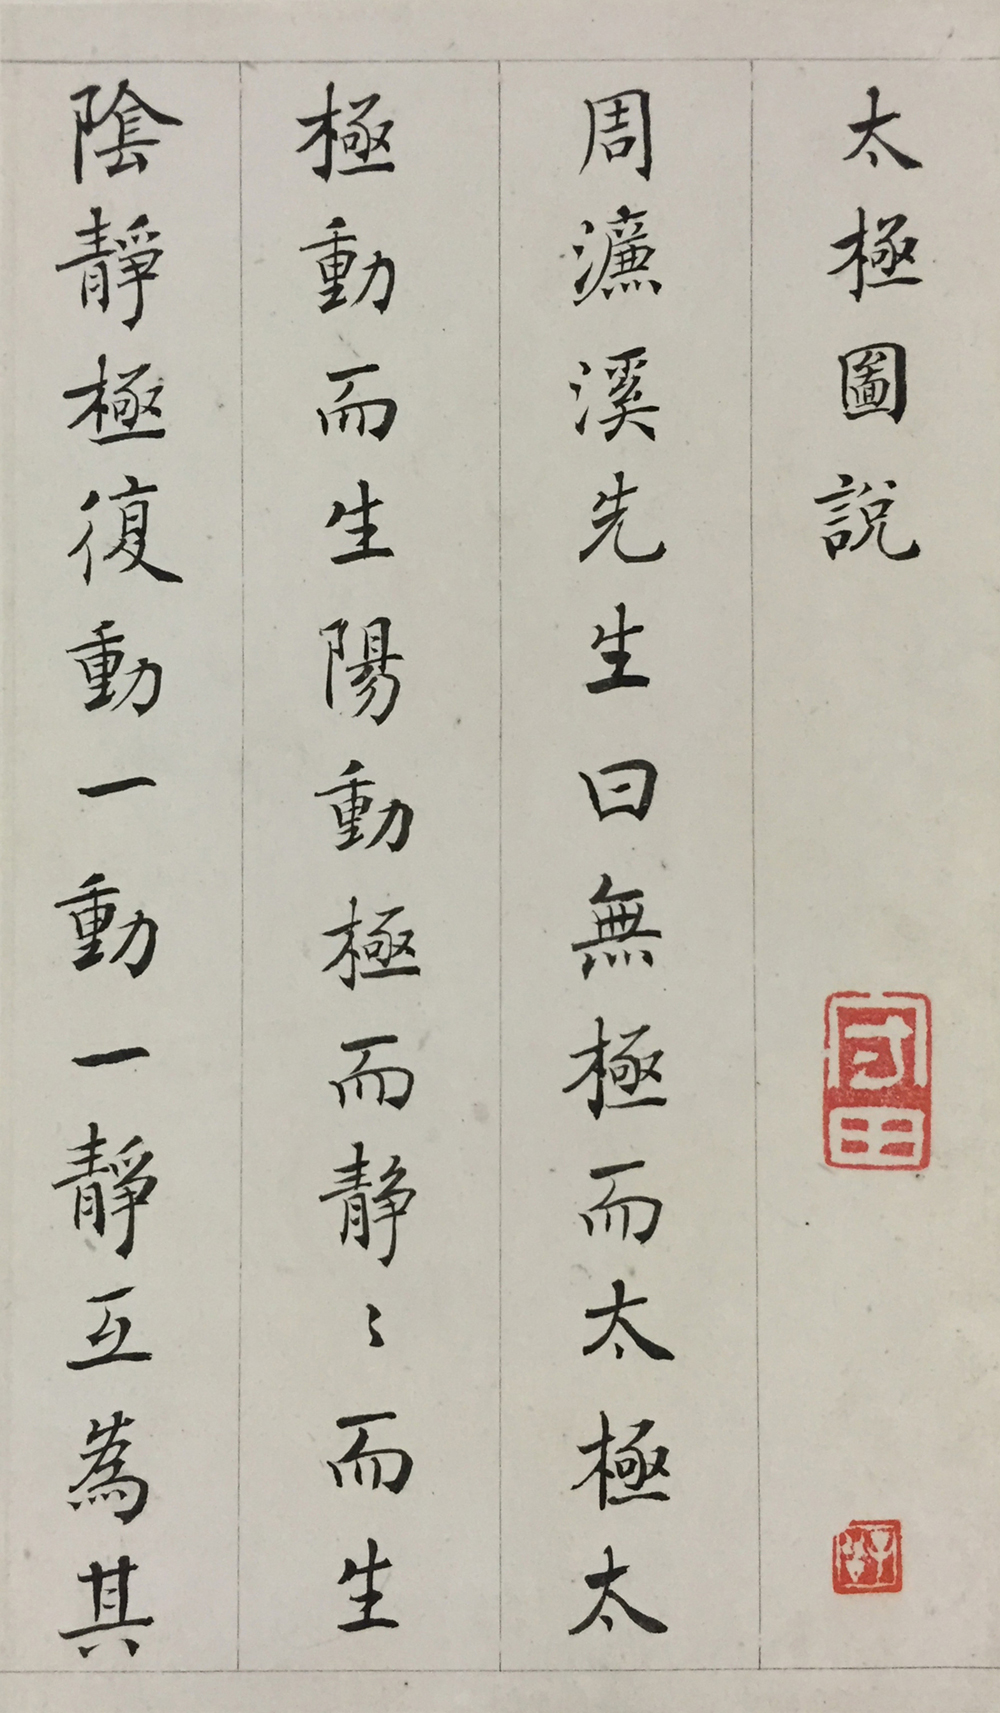 太極圖說
周濂溪先生曰無極而太極太
極動而生陽動極而靜〻而生
陰靜極復動一動一靜互為其